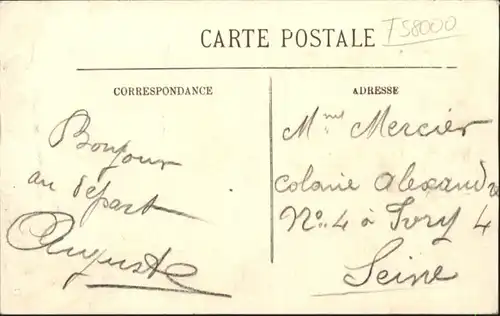 T58000
CARTE POSTALE
CORRESPONDANCE
ADRESSE
Bonjour
au départ
Auguste
Mme Mercier
Colonie Alexandre
No 4 à Ivry 4
Seine